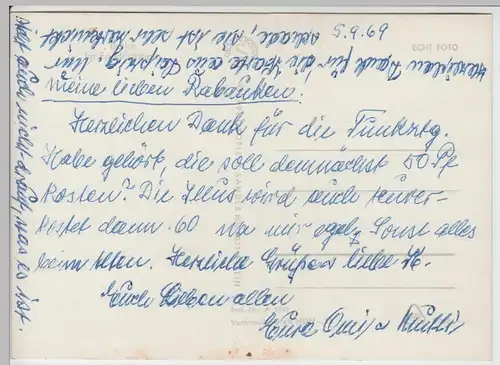 5.9.69
ECHT FOTO
Herzlichen Dank für die Karte aus Leipzig nur
schade, sie ist sehr zerknickt
Meine lieben Rabauken!
Herzlichen Dank für die Funkztg.
Habe gehört, die soll demnächst 50 Pf
kosten? Die Illus wird auch teurer
kostet dann 60 na mir egal. Sonst alles
beim Alten. Herzliche Grüße liebe
Euch Lieben allen
Eure Omi u Mutti
steht auch nicht drauf, was es ist.